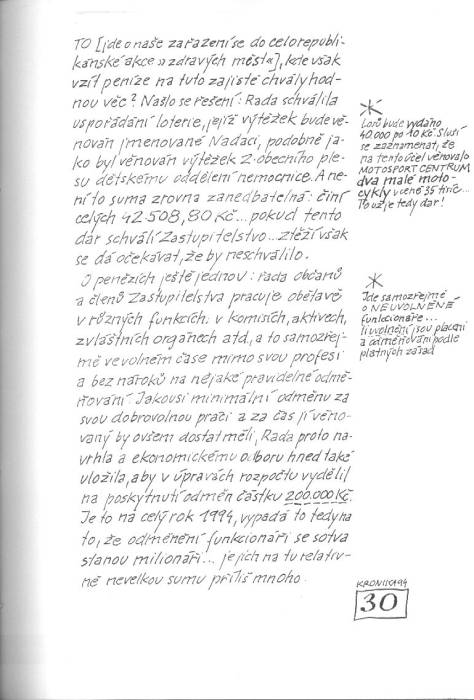 TO [jde o naše zařazení se do celorepubli-
kánské akce »zdravých měst«], kde však
vzít peníze na tuto zajisté chvályhod-
nou věc? Našlo se řešení: Rada schválila
uspořádání loterie, jejíž výtěžek bude vě-
nován jmenované Nadaci, podobně ja-
ko byl věnován výtěžek z obecního ple-
su dětskému oddělení nemocnice. A ne-
ní to suma zrovna zanedbatelná: činí
celých 42.508,80 Kč... pokud tento
dar schválí Zastupitelstvo... Ztěží však
se dá očekávat, že by neschválilo.
O penězích ještě jednou: řada občanů
a členů Zastupitelstva pracuje obětavě
v různých funkcích. v komisích, aktivech,
zvláštních orgánech atd., a to samozřej-
mě ve volném čase mimo svou profesi
a bez nároků na nějaké pravidelné odmě-
ňování. Jakousi minimální odměnu za
svou dobrovolnou práci a za čas jí věno-
vaný by ovšem dostat měli, Rada proto na-
vrhla a ekonomickému odboru hned také
uložila, aby v úpravách rozpočtu vydělil
na poskytnutí odměn částku 200.000 Kč.
Je to na celý rok 1994, vypadá to tedy na
to, že odměnění funkcionáři se sotva
stanou milionáři... je jich na tu relativ-
ně nevelkou sumu příliš mnoho.
*
Losů bude vydáno
40.000 po 10 Kč. Sluší
se zaznamenat, že
na tento účel věnovalo
MOTOSPORT CENTRUM
dva malé moto-
cykly v ceně 35 tisíc...
To už je tedy dar!
*
Jde samozřejmě
o NEUVOLNĚNÉ
funkcionáře...
ti uvolnění jsou placeni
a odměňováni podle
platných zásad
KRONIKA 94
30